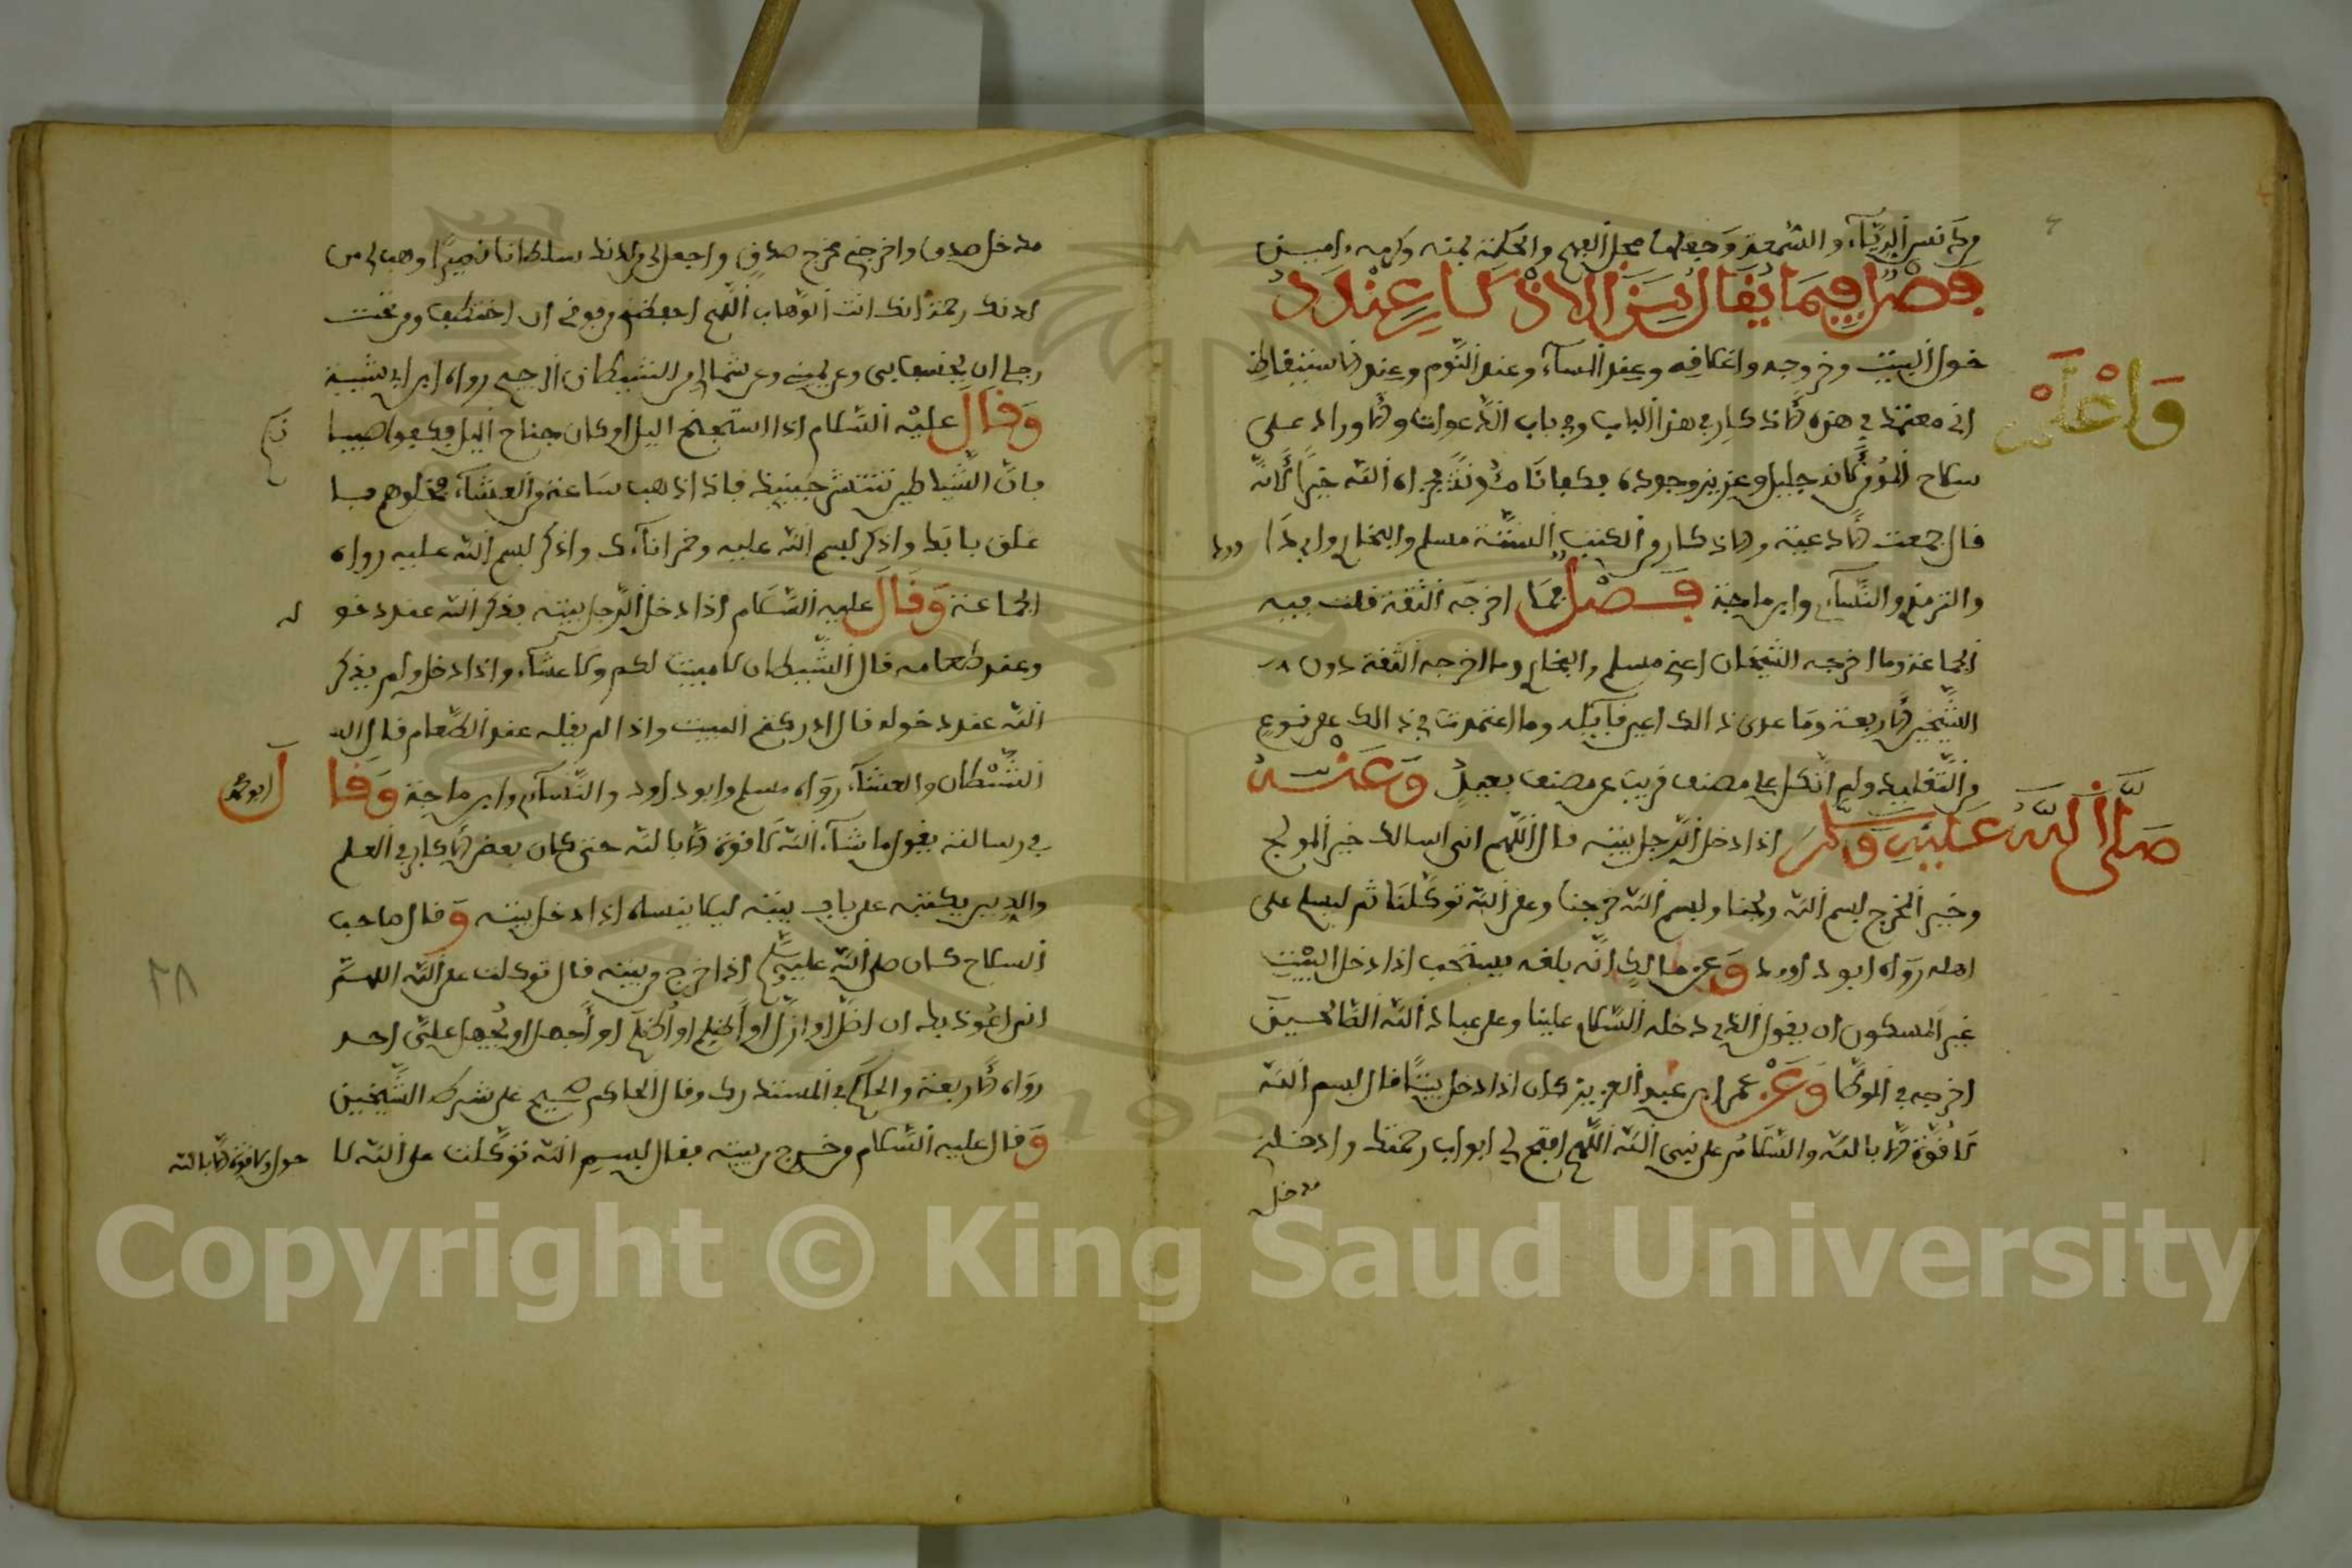 من دنس الرياء والسمعة وجعلها محل الفهم والحكمة بمنه وكرمه ءامين
فصل فيما يقال من الاذكار عند د
خول البيت وخروجه واغلافه وعند المساء وعند النوم وعند الاستيقاظ
واعلم
اني معتمد في هذه الاذكار في هذا الباب وفي باب الدعوات والاوراد على
سلاح المؤمن لانه جليل وعزيز وجوده جزاه الله خيرا لانه
قال جمعت الادعية والاذكار من الكتب الستة مسلم والبخاري وابي دا
وود
والترمذي والنساءي وابن ماجة فصل فما اخرجه الستة قلت فيه
الجماعة وما اخرجه الشيخان اعني مسلم والبخاري وما اخرجه الستة دون
الشيخين الاربعة وما عدى ذالك اعين قايله وما اعتمدت في ذالك على نوع
من التقليد ولم اتكل على مصنف قريب عن مصنف بعيد وعنه
صلى الله عليه وسلم اذا دخل الرجل بيته فال اللهم اني اسالك خير المولج
وخير المخرج بسم الله ولجنا وبسم الله خرجنا وعلى الله توكلنا ثم ليسلم على
اهله رواه ابو داوود وعن مالك انه بلغه يستحب اذا دخل البيت
غير المسكون ان يقول الذي دخله السلام علينا وعلى عباد الله الصالحين
اخرجه في الموطا وعن عمر ابن عبد العزيز كان اذا دخل بيتا قال بسم الله
لا قوة الا بالله والسلام على نبي الله اللهم افتح لي ابواب رحمتك وادخلني
مدخل
مدخل صدق واخرجني مخرج صدق واجعل لي من لدنك سلطانا نصيرا وهب لي من
لدنك رحمة انك انت الوهاب اللهم احفظني من فوقي ان اختطف ومن تحت
رجلي ان يخسف بي وعن يميني وعن شمالي من الشيطان الرجيم رواه ابن ابي شيبة
وقال عليه السلام اذا استجنح اليل او كان جناح اليل فكفوا صبيا
نكم
فان الشياطين تنتشر حينيذ فاذا ذهب ساعة من العشاء فخلوهم
غلق بابك واذكر اسم الله عليه وخمر اناءك واذكر اسم الله عليه رواه
الجماعة وقال عليه السلام اذا دخل الرجل بيته فذكر الله عند دخو
له
وعند طعامه قال الشيطان لا مبيت لكم ولا عشاء واذا دخل ولم يذكر
الله عند دخوله قال ادركتم المبيت واذا لم يقله عند الطعام قال لهم
الشيطان والعشاء رواه مسلم وابو داود والنساءي وابن ماجة وقا
ل ابو محمد
في رسالته يقول ما شاء الله لا قوة الا بالله حتى كان بعض الاكابر في العلم
والدين يكتبه على باب بيته ليلا ينساه اذا دخل بيته وقال صاحب
السلاح كان صلى الله عليه وسلم اذا خرج من بيته قال توكلت على الله اللهم
اني اعوذ بك ان اضل او ازل او اظلم او اظلم او اجهل او يجهل علي احد
رواه الاربعة والحاكم في المستدرك وقال الحاكم صحيح على شرط الشيخين
وقال عليه السلام من خرج من بيته فقال بسم الله توكلت على الله لا
حول ولا قوة الا بالله
٢٨
Copyright © King Saud University
1957